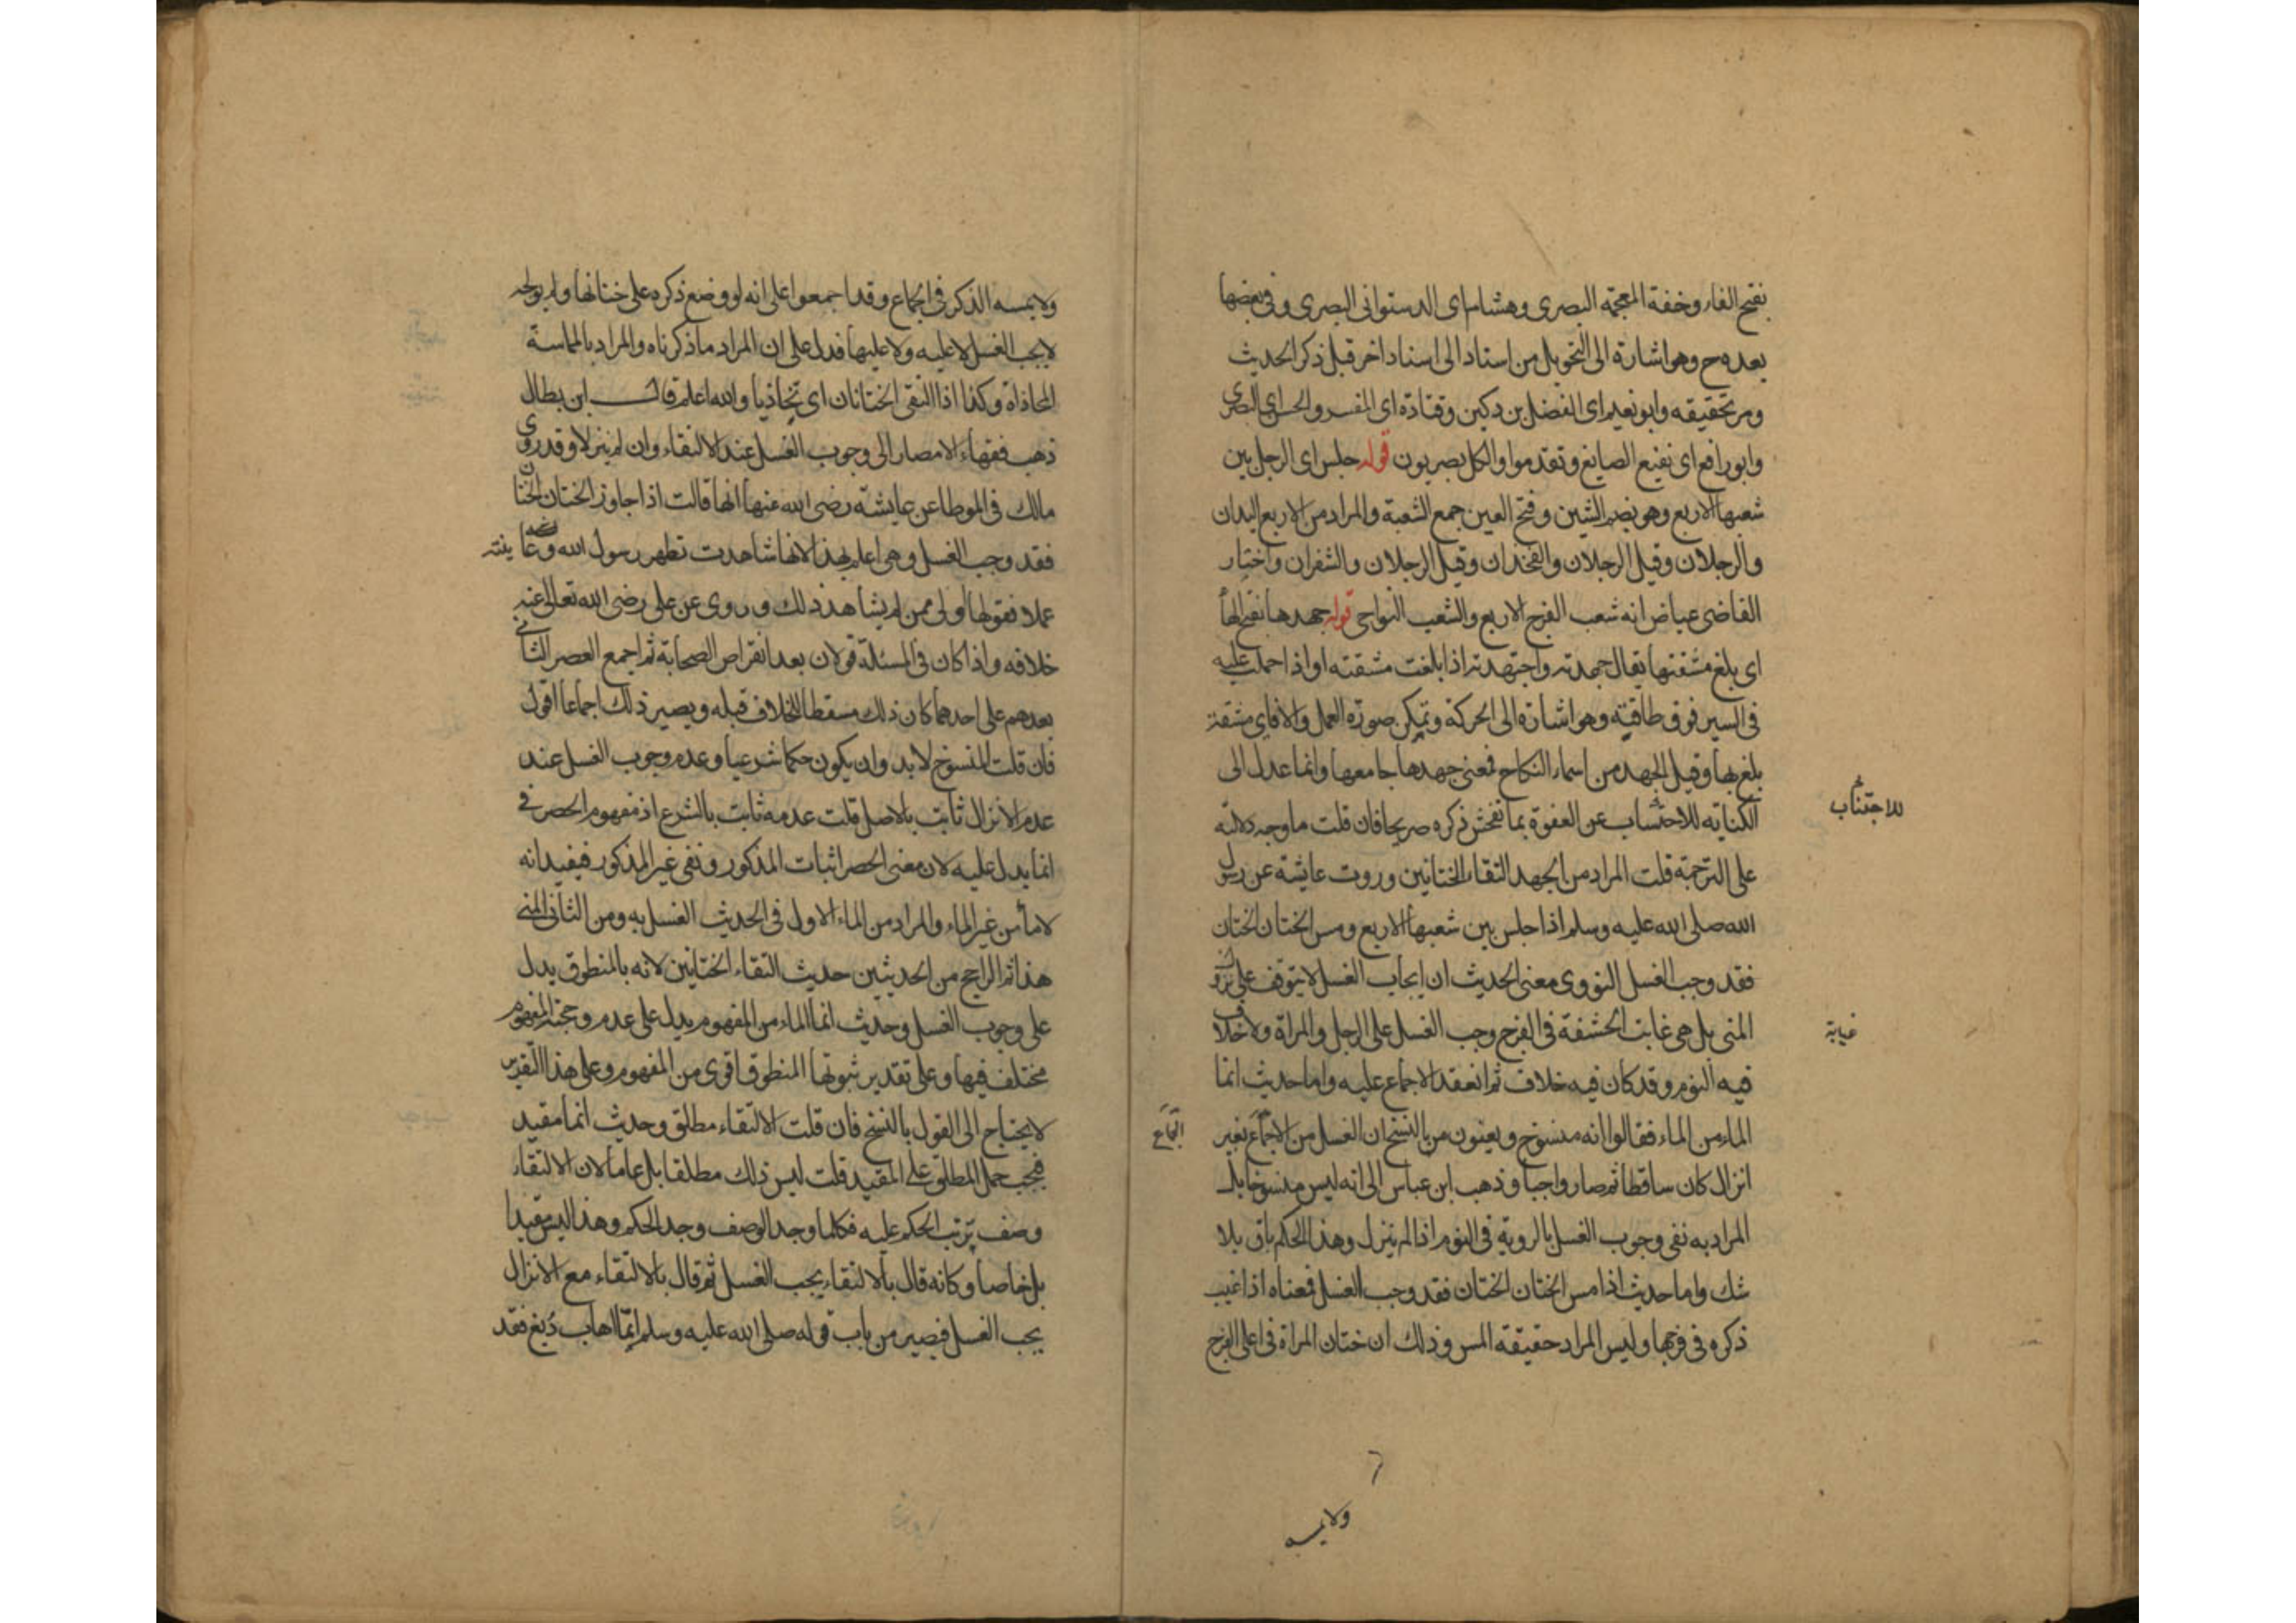 بفتح الفاء وخفة المعجمة البصرى وهشام اى الدستوانى البصرى وفى بعضها
بعده ح وهو اشارة الى التحويل من اسناد الى اسناد اخر قبل ذكر الحديث
ومر تحقيقه وابو نعيم اى الفضل بن دكين وقتادة اى المفسر والحسن اى البصرى
وابو رافع اى نفيع الصايغ وتقدموا والكل بصريون قوله جلس اى الرجل بين
شعبها الاربع وهو بضم الشين وفتح العين جمع الشعبة والمراد من الاربع اليدان
والرجلان وقيل الرجلان والفخذان وقيل الرجلان والشفران واختار
القاضى عياض انه شعب الفرج الاربع والشعب النواحى قوله جهدها بفتح الهاء
اى بلغ مشقتها يقال جهدته واجتهدته اذا بلغت مشقته او اذا حملت عليه
فى السير فوق طاقته وهو اشارة الى الحركة وتمكن صورة العمل والا فاى مشقة
بلغ بها وقيل الجهد من اسماء النكاح فمعنى جهدها جامعها وانما عدل الى
الكناية للاحتساب عن التفوه بما تفحش ذكره صريحا فان قلت ما وجه دلالته
للاجتناب
على الترجمة قلت المراد من الجهد التقاء الختانين وروت عايشة عن رسول
الله صلى الله عليه وسلم اذا جلس بين شعبها الاربع ومس الختان الختان
فقد وجب الغسل النووى معنى الحديث ان ايجاب الغسل لا يتوقف على نزول
المنى بل هى غابت الحشفة فى الفرج وجب الغسل على الرجل والمراة ولا خلاف
غيابة
فيه اليوم وقد كان فيه خلاف ثم انعقد الاجماع عليه واما حديث انما
الماء من الماء فقالوا انه منسوخ ويعنون من بالنسخ ان الغسل من الاجماع بغير
الجماع
انزال كان ساقطا ثم صار واجبا وذهب ابن عباس الى انه ليس منسوخا بل
المراد به نفى وجوب الغسل بالروية فى النوم اذا لم ينزل وهذا الحكم باق بلا
شك واما حديث اذا مس الختان الختان فقد وجب الغسل فمعناه اذا غيب
ذكره فى فرجها وليس المراد حقيقة المس وذلك ان ختان المراة فى اعلى الفرج
ولا يمسه
ولا يمسه الذكر فى الجماع وقد اجمعوا على انه لو وضع ذكره على ختانها ولم يولجه
لا يجب الغسل لا عليه ولا عليها فدل على ان المراد ما ذكرناه والمراد بالمماسة
المحاذاة وكذا اذا التقى الختانان اى تحاذيا والله اعلم قال ابن بطال
ذهب فقهاء الامصار الى وجوب الغسل عند الالتقاء وان لم ينزلا وقد روى
مالك فى الموطا عن عايشة رضى الله عنها انها قالت اذا جاوز الختان الختان
فقد وجب الغسل وهى اعلم بهذا لانها شاهدت تطهر رسول الله وعاينته
عملا فقولها اولى ممن لم يشاهد ذلك وروى عن على رضى الله تعالى عنه
خلافه واذا كان فى المسئلة قولان بعد انقراض الصحابة ثم اجمع العصر الثانى
بعدهم على احدهما كان ذلك مسقطا للخلاف قبله ويصير ذلك اجماعا اقول
فان قلت المنسوخ لابد وان يكون حكما شرعيا وعدم وجوب الغسل عند
عدم الانزال ثابت بالاصل قلت عدمه ثابت بالشرع اذ مفهوم الحصر فى
انما يدل عليه لان معنى الحصر اثبات المذكور ونفى غير المذكور فيفيد انه
لا ماء من غير الماء والمراد من الماء الاول فى الحديث الغسل به ومن الثانى المنى
هذا ثم الراجح من الحديثين حديث التقاء الختانين لانه بالمنطوق يدل
على وجوب الغسل وحديث انما الماء من المفهوم يدل على عدم وحجة المفهوم
مختلف فيها وعلى تقدير ثبوتها المنطوق اقوى من المفهوم وعلى هذا التقدير
لا يحتاج الى القول بالنسخ فان قلت الالتقاء مطلق وحديث انما مقيد
فيجب حمل المطلق على المقيد قلت ليس ذلك مطلقا بل عاما لان الالتقاء
وصف يترتب الحكم عليه فكلما وجد الوصف وجد الحكم وهذا ليس مقيدا
بل خاصا وكانه قال بالالتقاء يجب الغسل ثم قال بالالتقاء مع الانزال
يجب الغسل فيصير من باب قوله صلى الله عليه وسلم ايما اهاب دبغ فقد